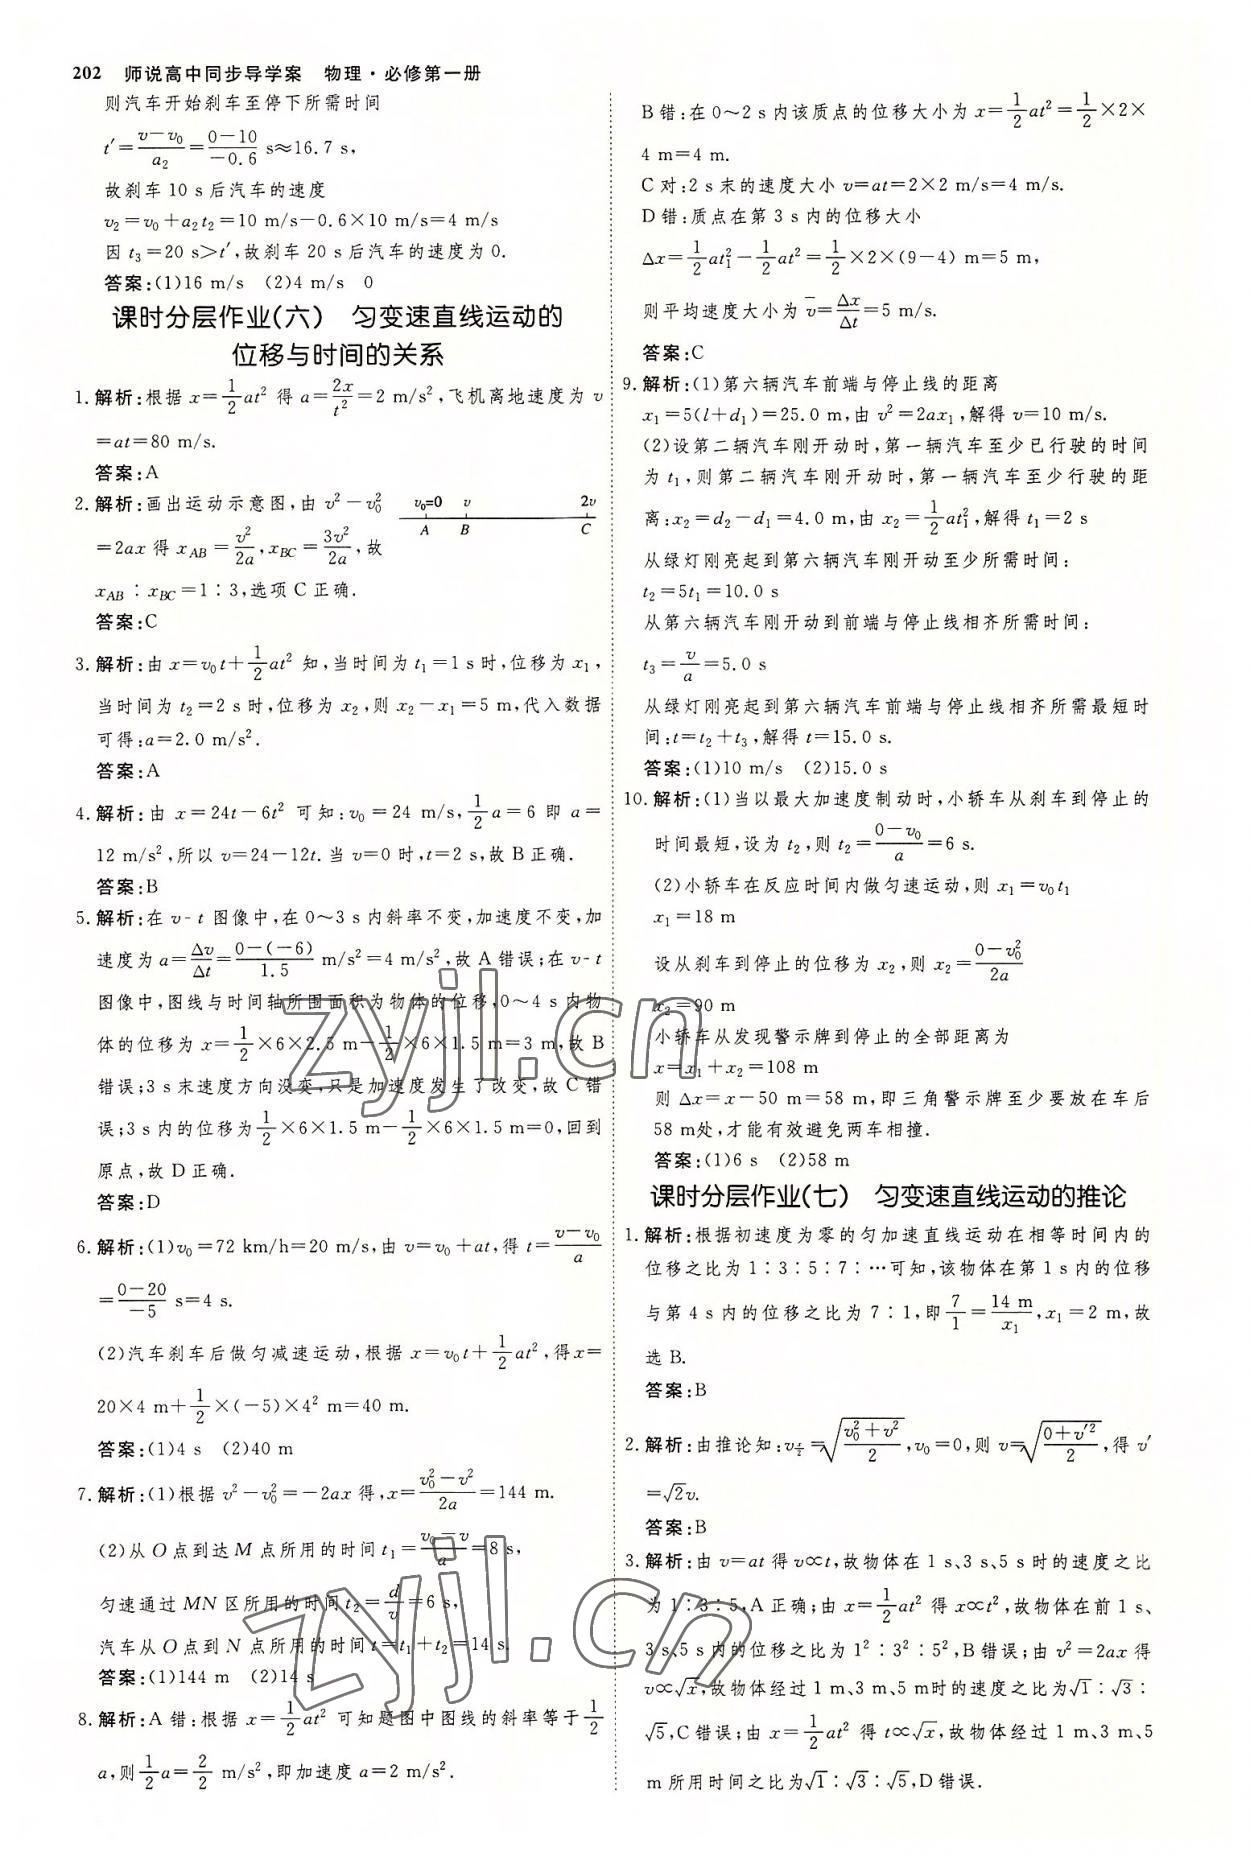 202 师说高中同步导学案 物理·必修第一册
则汽车开始刹车至停下所需时间
t′=(v-v₀)/a₂=(0-10)/(-0.6) s≈16.7 s,
故刹车 10 s 后汽车的速度
v₂=v₀+a₂t₂=10 m/s-0.6×10 m/s=4 m/s
因 t₃=20 s>t′,故刹车 20 s 后汽车的速度为 0.
答案:(1)16 m/s (2)4 m/s 0
课时分层作业(六) 匀变速直线运动的
位移与时间的关系
1.解析:根据 x=1/2 at² 得 a=2x/t²=2 m/s²,飞机离地速度为 v
=at=80 m/s.
答案:A
2.解析:画出运动示意图,由 v²-v₀²
=2ax 得 x_AB=v²/2a,x_BC=3v²/2a,故
x_AB∶x_BC=1∶3,选项 C 正确.
v₀=0 v 2v
A B C
答案:C
3.解析:由 x=v₀t+1/2 at² 知,当时间为 t₁=1 s 时,位移为 x₁,
当时间为 t₂=2 s 时,位移为 x₂,则 x₂-x₁=5 m,代入数据
可得:a=2.0 m/s².
答案:A
4.解析:由 x=24t-6t² 可知:v₀=24 m/s,1/2 a=6 即 a=
12 m/s²,所以 v=24-12t.当 v=0 时,t=2 s,故 B 正确.
答案:B
5.解析:在 v-t 图像中,在 0～3 s 内斜率不变,加速度不变,加
速度为 a=Δv/Δt=(0-(-6))/1.5 m/s²=4 m/s²,故 A 错误;在 v-t
图像中,图线与时间轴所围面积为物体的位移,0～4 s 内物
体的位移为 x=1/2×6×2.5 m-1/2×6×1.5 m=3 m,故 B
错误;3 s 末速度方向没变,只是加速度发生了改变,故 C 错
误;3 s 内的位移为1/2×6×1.5 m-1/2×6×1.5 m=0,回到
原点,故 D 正确.
答案:D
6.解析:(1)v₀=72 km/h=20 m/s,由 v=v₀+at,得 t=(v-v₀)/a
=(0-20)/(-5) s=4 s.
(2)汽车刹车后做匀减速运动,根据 x=v₀t+1/2 at²,得 x=
20×4 m+1/2×(-5)×4² m=40 m.
答案:(1)4 s (2)40 m
7.解析:(1)根据 v²-v₀²=-2ax 得,x=(v₀²-v²)/2a=144 m.
(2)从 O 点到达 M 点所用的时间 t₁=(v₀-v)/a=8 s,
匀速通过 MN 区所用的时间 t₂=d/v=6 s,
汽车从 O 点到 N 点所用的时间 t=t₁+t₂=14 s.
答案:(1)144 m (2)14 s
8.解析:A 错:根据 x=1/2 at² 可知题图中图线的斜率等于1/2
a,则1/2 a=2/2 m/s²,即加速度 a=2 m/s².
B 错:在 0～2 s 内该质点的位移大小为 x=1/2 at²=1/2×2×
4 m=4 m.
C 对:2 s 末的速度大小 v=at=2×2 m/s=4 m/s.
D 错:质点在第 3 s 内的位移大小
Δx=1/2 at₁²-1/2 at²=1/2×2×(9-4) m=5 m,
则平均速度大小为 v̄=Δx/Δt=5 m/s.
答案:C
9.解析:(1)第六辆汽车前端与停止线的距离
x₁=5(l+d₁)=25.0 m,由 v²=2ax₁,解得 v=10 m/s.
(2)设第二辆汽车刚开动时,第一辆汽车至少已行驶的时间
为 t₁,则第二辆汽车刚开动时,第一辆汽车至少行驶的距
离:x₂=d₂-d₁=4.0 m,由 x₂=1/2 at₁²,解得 t₁=2 s
从绿灯刚亮起到第六辆汽车刚开动至少所需时间:
t₂=5t₁=10.0 s
从第六辆汽车刚开动到前端与停止线相齐所需时间:
t₃=v/a=5.0 s
从绿灯刚亮起到第六辆汽车前端与停止线相齐所需最短时
间:t=t₂+t₃,解得 t=15.0 s.
答案:(1)10 m/s (2)15.0 s
10.解析:(1)当以最大加速度制动时,小轿车从刹车到停止的
时间最短,设为 t₂,则 t₂=(0-v₀)/a=6 s.
(2)小轿车在反应时间内做匀速运动,则 x₁=v₀t₁
x₁=18 m
设从刹车到停止的位移为 x₂,则 x₂=(0-v₀²)/2a
x₂=90 m
小轿车从发现警示牌到停止的全部距离为
x=x₁+x₂=108 m
则 Δx=x-50 m=58 m,即三角警示牌至少要放在车后
58 m处,才能有效避免两车相撞.
答案:(1)6 s (2)58 m
课时分层作业(七) 匀变速直线运动的推论
1.解析:根据初速度为零的匀加速直线运动在相等时间内的
位移之比为 1∶3∶5∶7∶…可知,该物体在第 1 s 内的位移
与第 4 s 内的位移之比为 7∶1,即7/1=14 m/x₁,x₁=2 m,故
选 B.
答案:B
2.解析:由推论知:v_{x/2}=√((v₀²+v²)/2),v₀=0,则 v=√((0+v′²)/2),得 v′
=√2v.
答案:B
3.解析:由 v=at 得 v∝t,故物体在 1 s、3 s、5 s 时的速度之比
为 1∶3∶5,A 正确;由 x=1/2 at² 得 x∝t²,故物体在前 1 s、
3 s、5 s 内的位移之比为 1²∶3²∶5²,B 错误;由 v²=2ax 得
v∝√x,故物体经过 1 m、3 m、5 m时的速度之比为√1∶√3∶
√5,C 错误;由 x=1/2 at² 得 t∝√x,故物体经过 1 m、3 m、5
m 所用时间之比为√1∶√3∶√5,D 错误.
zyjl.cn
zyjl.cn